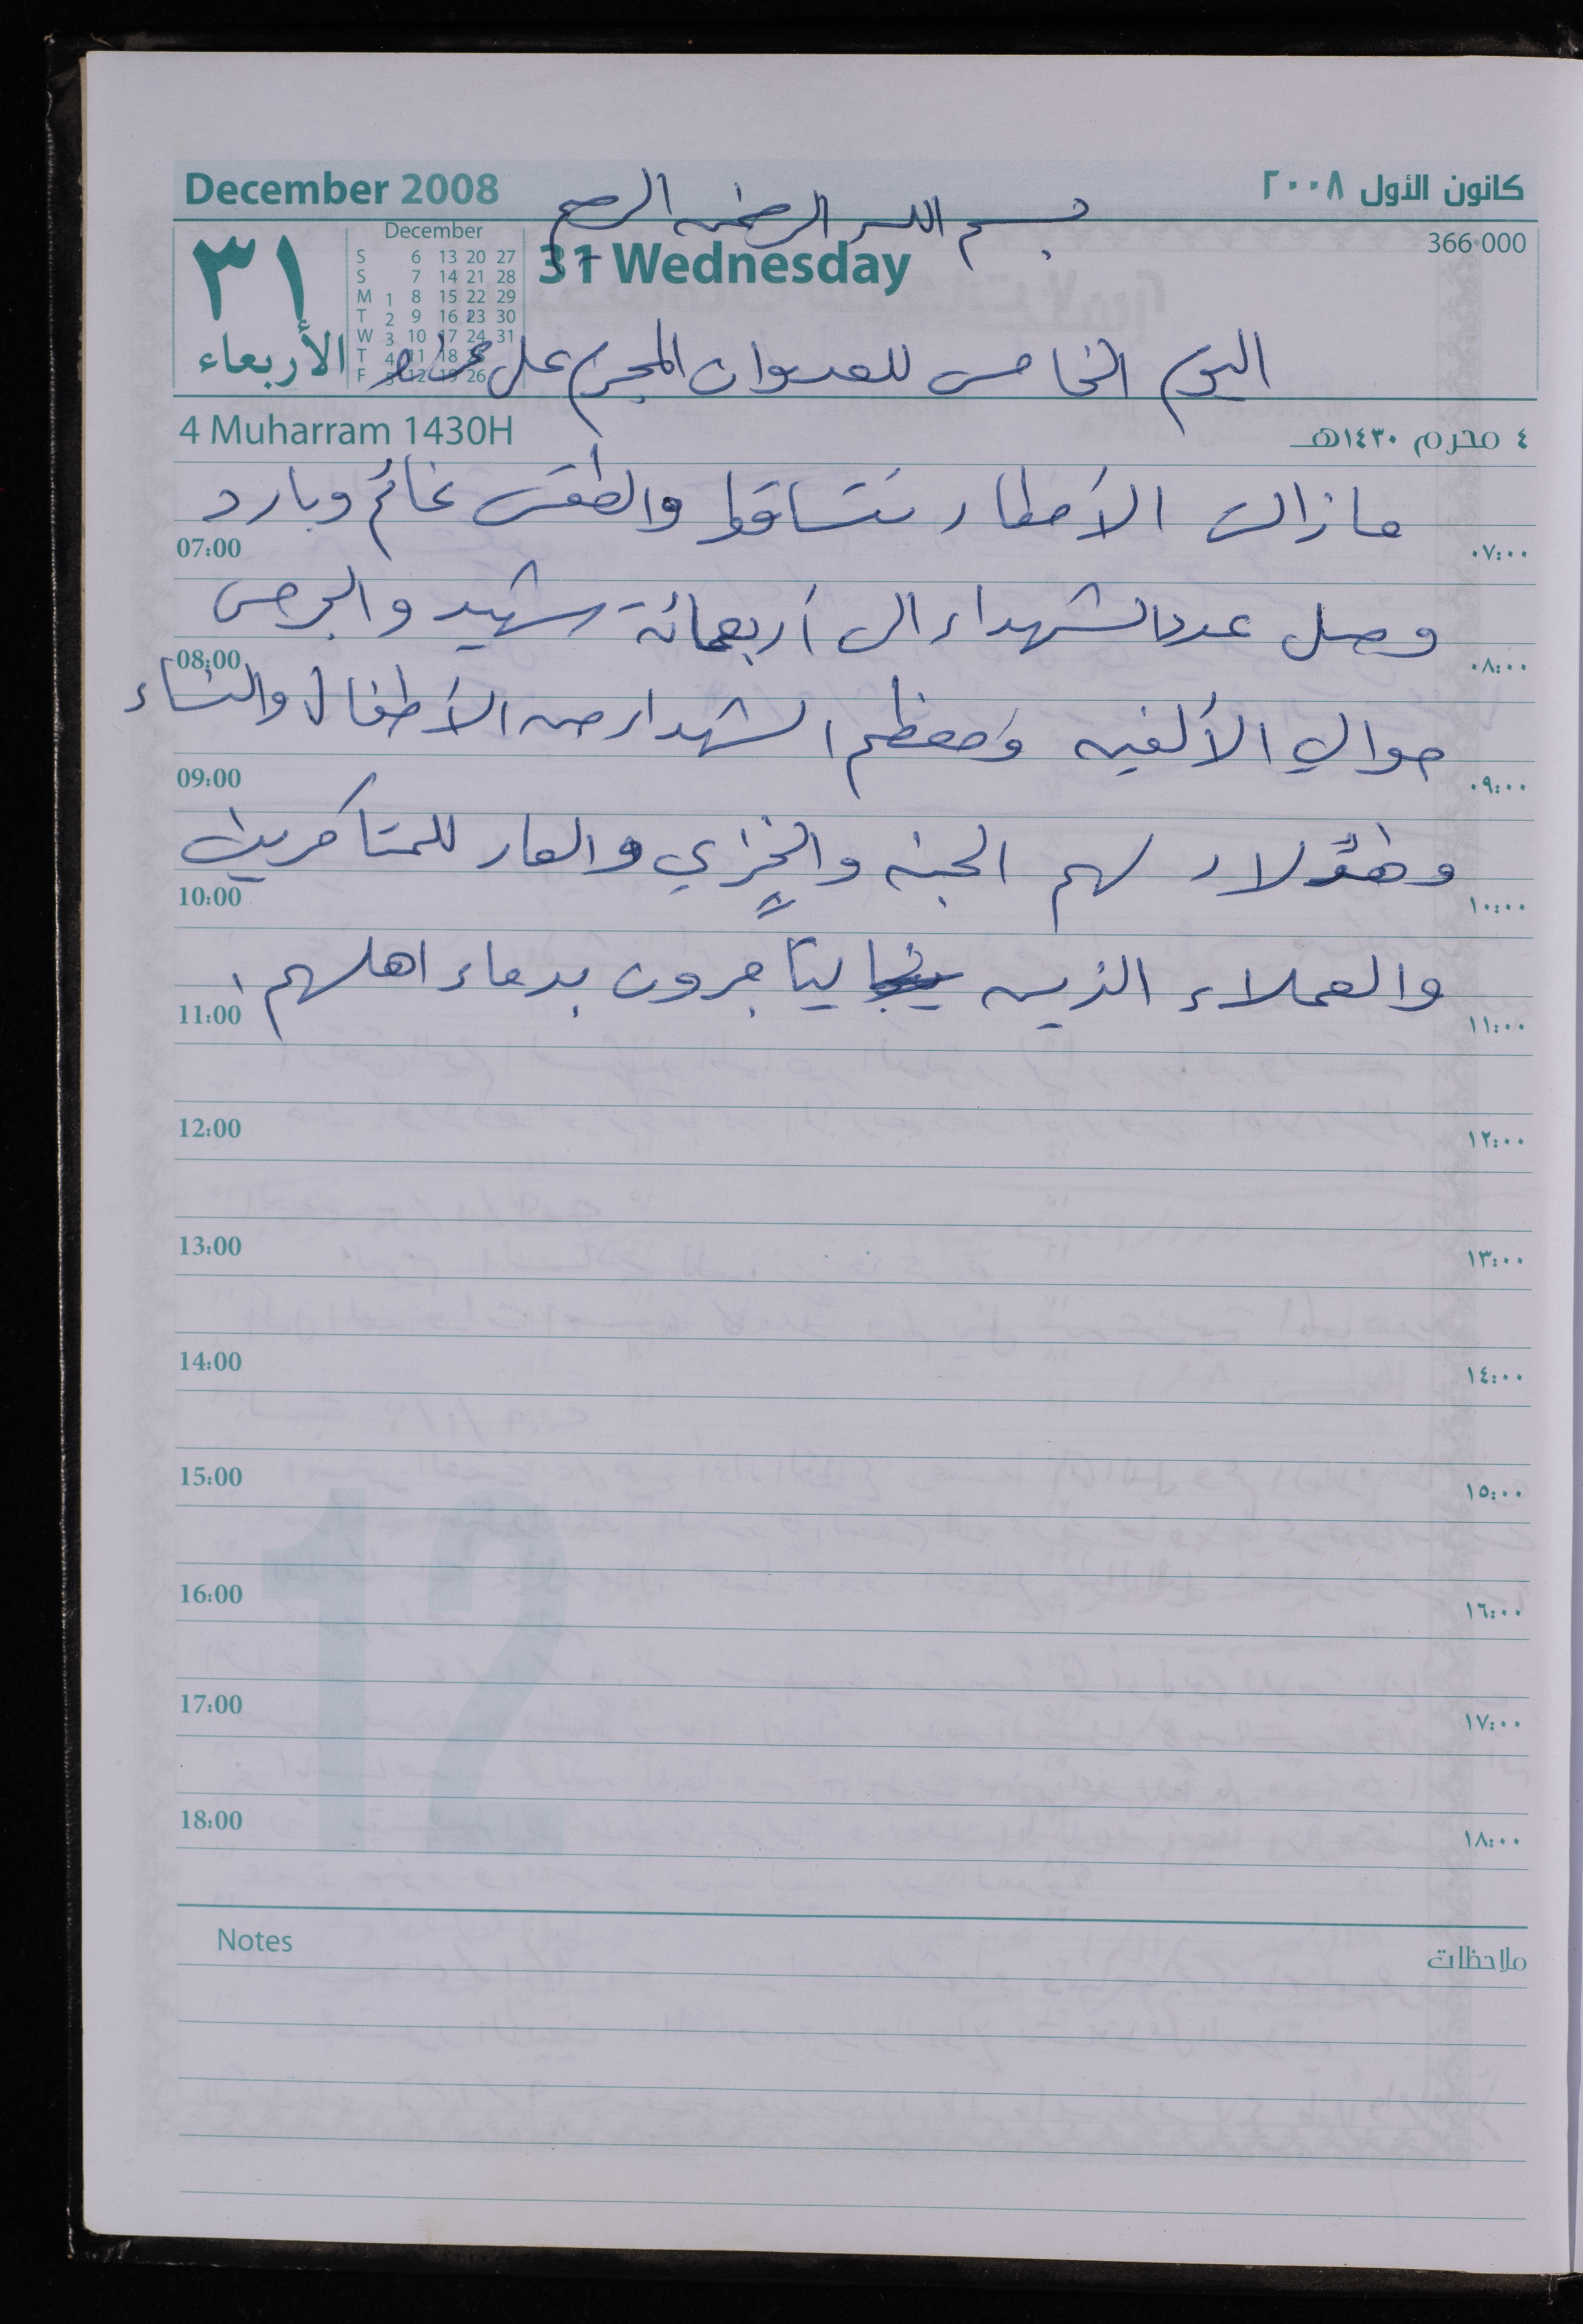 December 2008
كانون الأول ٢٠٠٨
بسم الله الرحمن الرحيم
٣١
الأربعاء
December
S 6 13 20 27
S 7 14 21 28
M 1 8 15 22 29
T 2 9 16 23 30
W 3 10 17 24 31
T 4 11 18
F 5 12 19 26
31 Wednesday
366-000
اليوم الخامس للعدوان المجرم على غزة
4 Muharram 1430H
٤ محرم ١٤٣٠هـ
مازالت الأمطار تتساقط والطقس غائم وبارد
07:00 ٠٧:٠٠
وصل عدد الشهداء الى أربعمائة شهيد والجرحى
08:00 ٠٨:٠٠
حوالي الألفين ومعظم الشهداء من الأطفال والنساء
09:00 ٠٩:٠٠
وهؤلاء لهم الجنه والخزي والعار للمتآمرين
10:00 ١٠:٠٠
والعملاء الذين يتاجرون بدماء اهلهم.
11:00 ١١:٠٠
12:00 ١٢:٠٠
13:00 ١٣:٠٠
14:00 ١٤:٠٠
15:00 ١٥:٠٠
16:00 ١٦:٠٠
17:00 ١٧:٠٠
18:00 ١٨:٠٠
12
Notes
ملاحظات